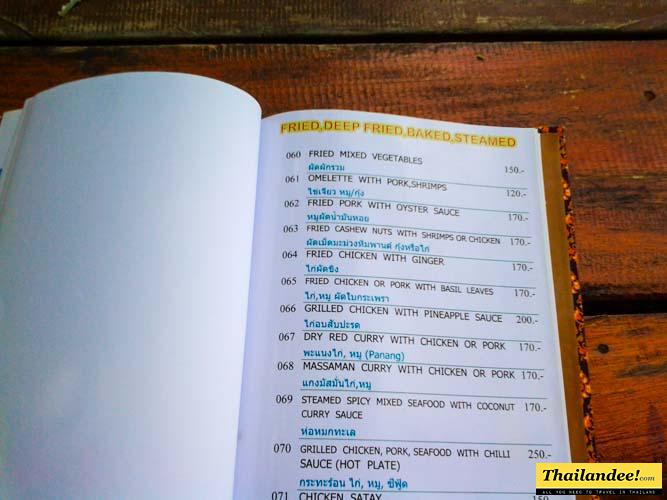 FRIED,DEEP FRIED,BAKED,STEAMED
060 FRIED MIXED VEGETABLES 150.-
ผัดผักรวม
061 OMELETTE WITH PORK,SHRIMPS 120.-
ไข่เจียว หมู/กุ้ง
062 FRIED PORK WITH OYSTER SAUCE 170.-
หมูผัดน้ำมันหอย
063 FRIED CASHEW NUTS WITH SHRIMPS OR CHICKEN 170.-
ผัดเม็ดมะม่วงหิมพานต์ กุ้งหรือไก่
064 FRIED CHICKEN WITH GINGER 170.-
ไก่ผัดขิง
065 FRIED CHICKEN OR PORK WITH BASIL LEAVES 170.-
ไก่,หมู ผัดใบกระเพรา
066 GRILLED CHICKEN WITH PINEAPPLE SAUCE 200.-
ไก่อบสับปะรด
067 DRY RED CURRY WITH CHICKEN OR PORK 170.-
พะแนงไก่, หมู (Panang)
068 MASSAMAN CURRY WITH CHICKEN OR PORK 170.-
แกงมัสมั่นไก่,หมู
069 STEAMED SPICY MIXED SEAFOOD WITH COCONUT 170.-
CURRY SAUCE
ห่อหมกทะเล
070 GRILLED CHICKEN, PORK, SEAFOOD WITH CHILLI 250.-
SAUCE (HOT PLATE)
กระทะร้อน ไก่, หมู, ซีฟู้ด
071 CHICKEN SATAY 150
Thailandee!.com
ALL YOU NEED TO TRAVEL IN THAILAND